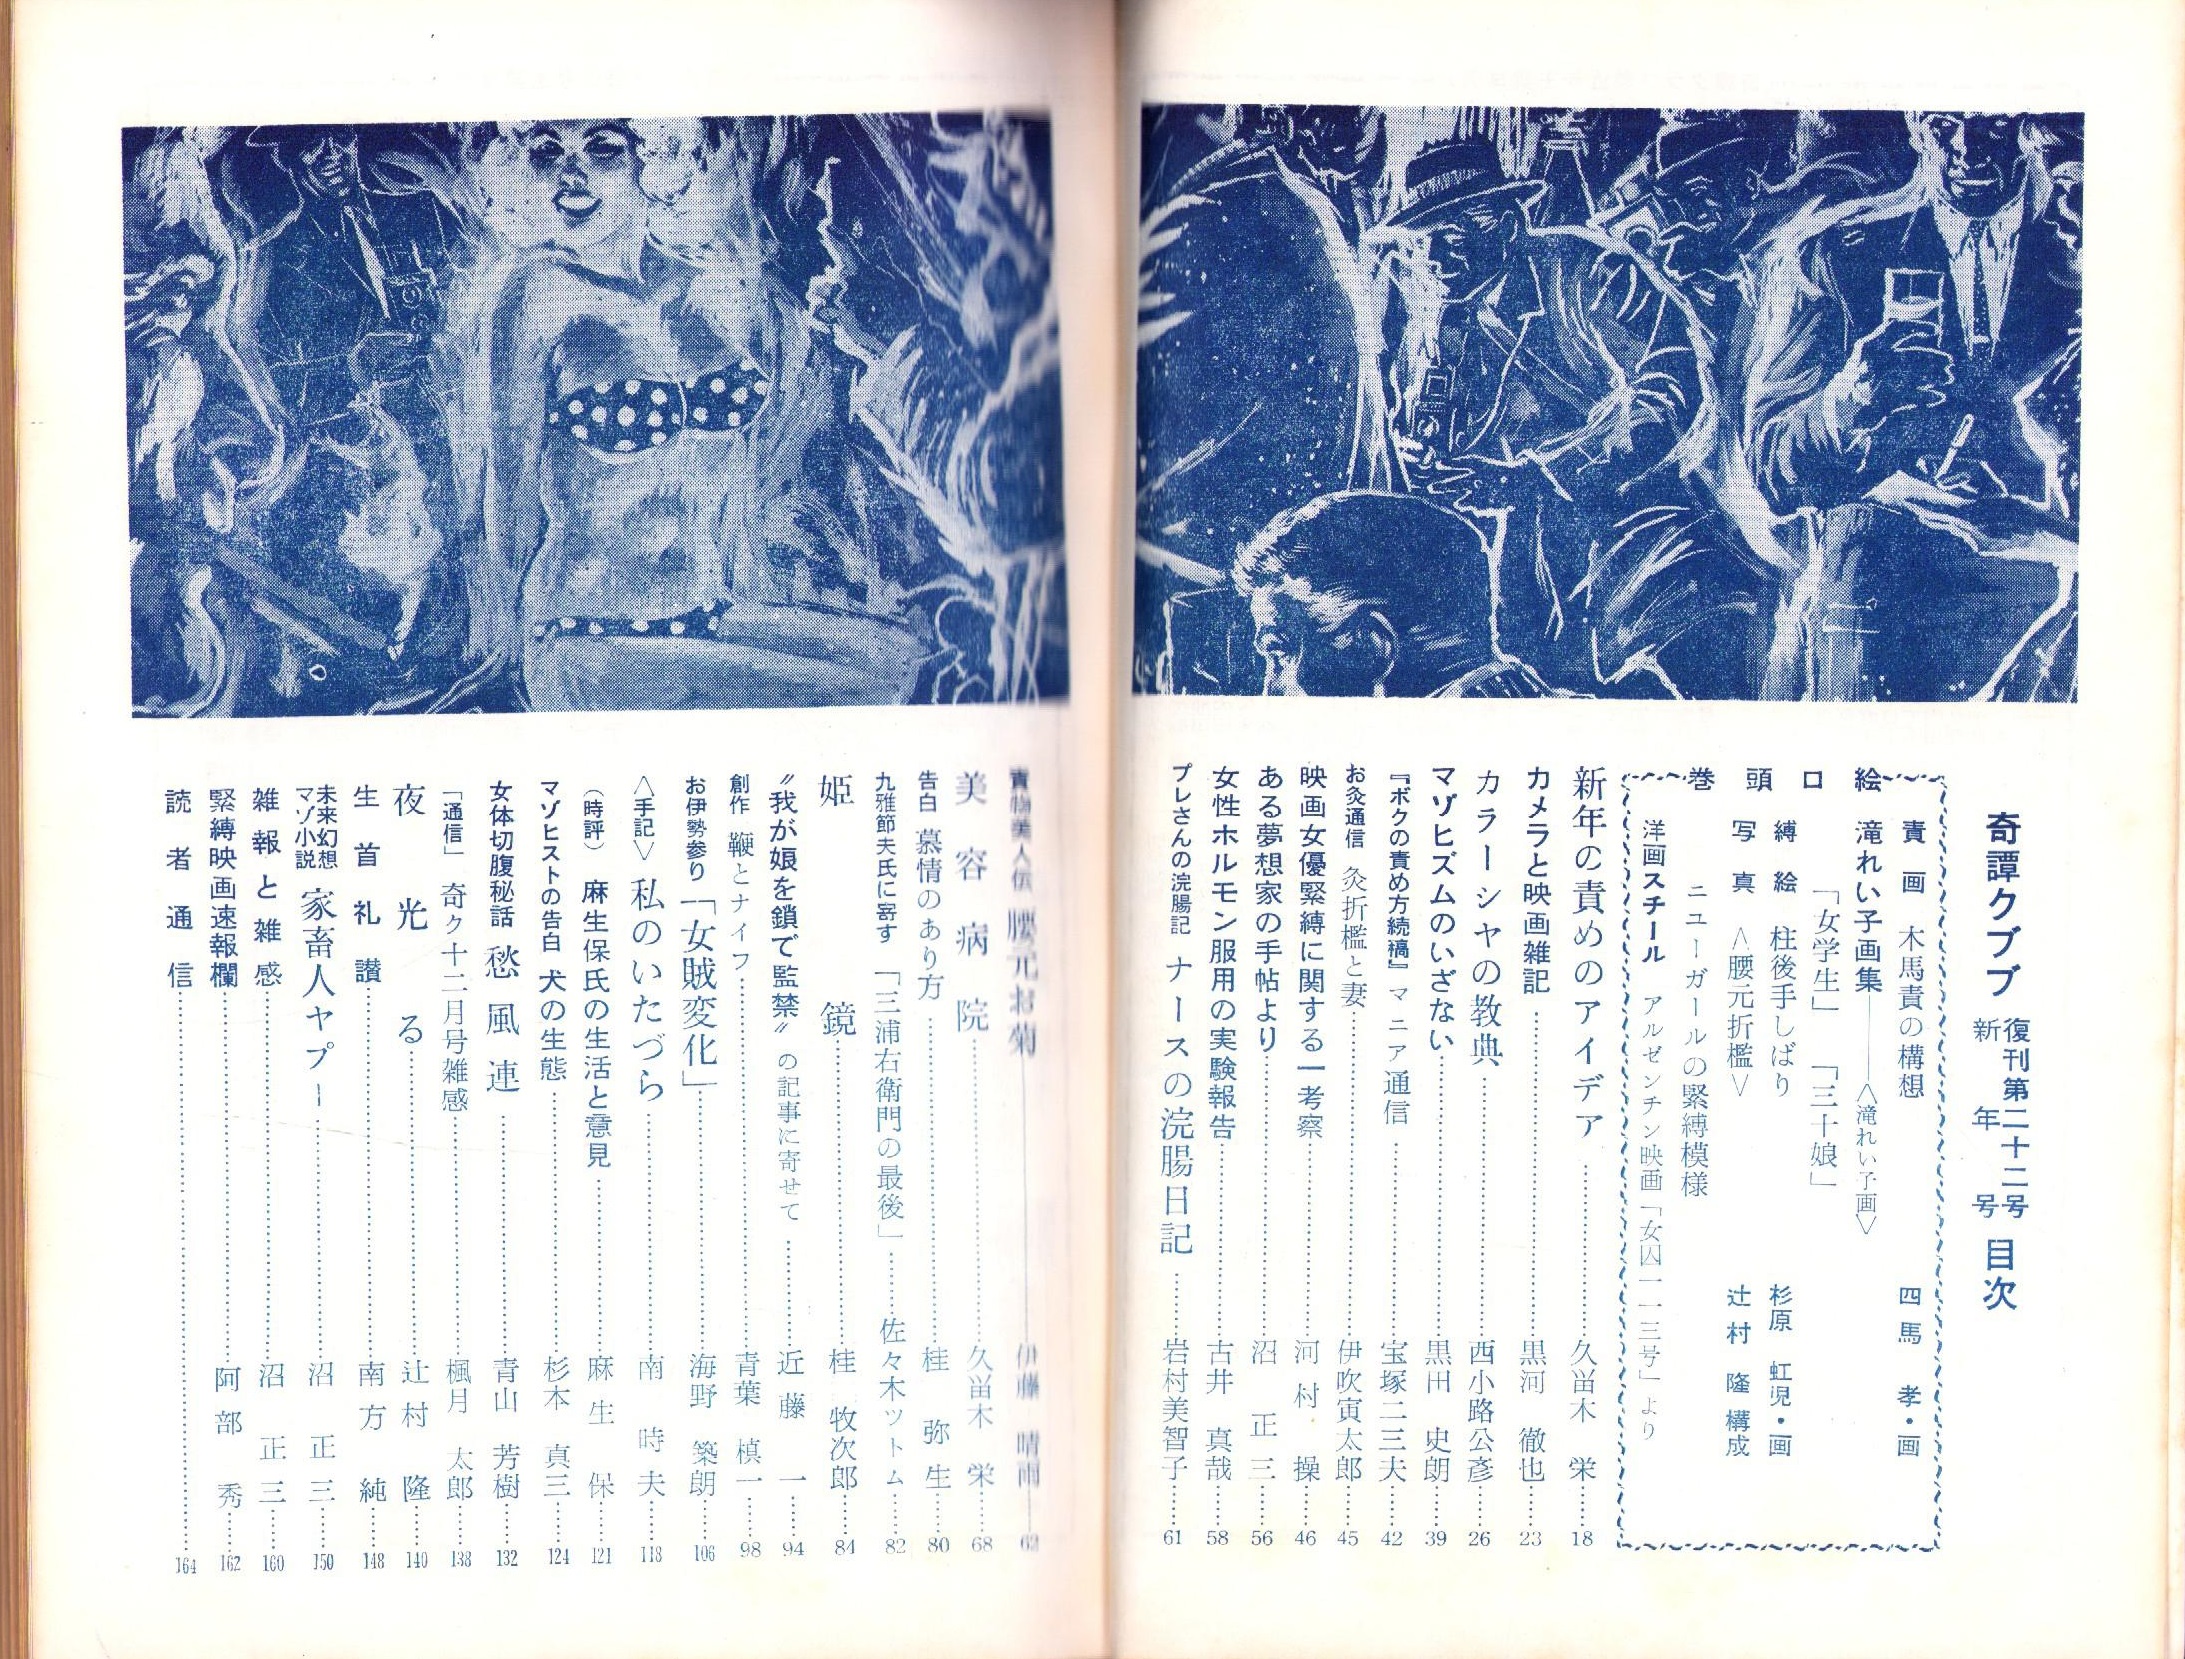 奇譚クブブ 復刊第二十二号 新年号 目次
責画 木馬責の構想 四馬孝・画
絵 滝れい子画集――〈滝れい子画〉
「女学生」「三十娘」
口
縛絵 柱後手しばり 杉原虹児・画
頭 写真 〈腰元折檻〉 辻村隆構成
巻 ニューガールの緊縛模様
洋画スチール アルゼンチン映画「女囚一一三号」より
新年の責めのアイデア……久留木栄……18
カメラと映画雑記……黒河徹也……23
カラーシャの教典……西小路公彦……26
マゾヒズムのいざない……黒田史朗……39
『ボクの責め方続稿』マニア通信……宝塚二三夫……42
お灸通信 灸折檻と妻……伊吹寅太郎……45
映画女優緊縛に関する一考察……河村操……46
ある夢想家の手帖より……沼正三……56
女性ホルモン服用の実験報告……古井真哉……58
プレさんの浣腸記 ナースの浣腸日記……岩村美智子……61
責物美人伝 腰元お菊――伊藤晴雨――62
美容病院……久留木栄……68
告白 慕情のあり方……桂弥生……80
九雅節夫氏に寄す 「三浦右衛門の最後」……佐々木ツトム……82
姫鏡……桂牧次郎……84
〝我が娘を鎖で監禁〟の記事に寄せて……近藤一……94
創作 鞭とナイフ……青葉槙一……98
お伊勢参り「女賊変化」……海野築朗……106
〈手記〉私のいたづら……南時夫……118
(時評)麻生保氏の生活と意見……麻生保……121
マゾヒストの告白 犬の生態……杉本真三……124
女体切腹秘話 愁風連……青山芳樹……132
「通信」奇ク十二月号雑感……楓月太郎……138
夜光る……辻村隆……140
生首礼讃……南方純……148
未来幻想マゾ小説 家畜人ヤプー……沼正三……150
雑報と雑感……沼正三……160
緊縛映画速報欄……阿部秀……162
読者通信……164